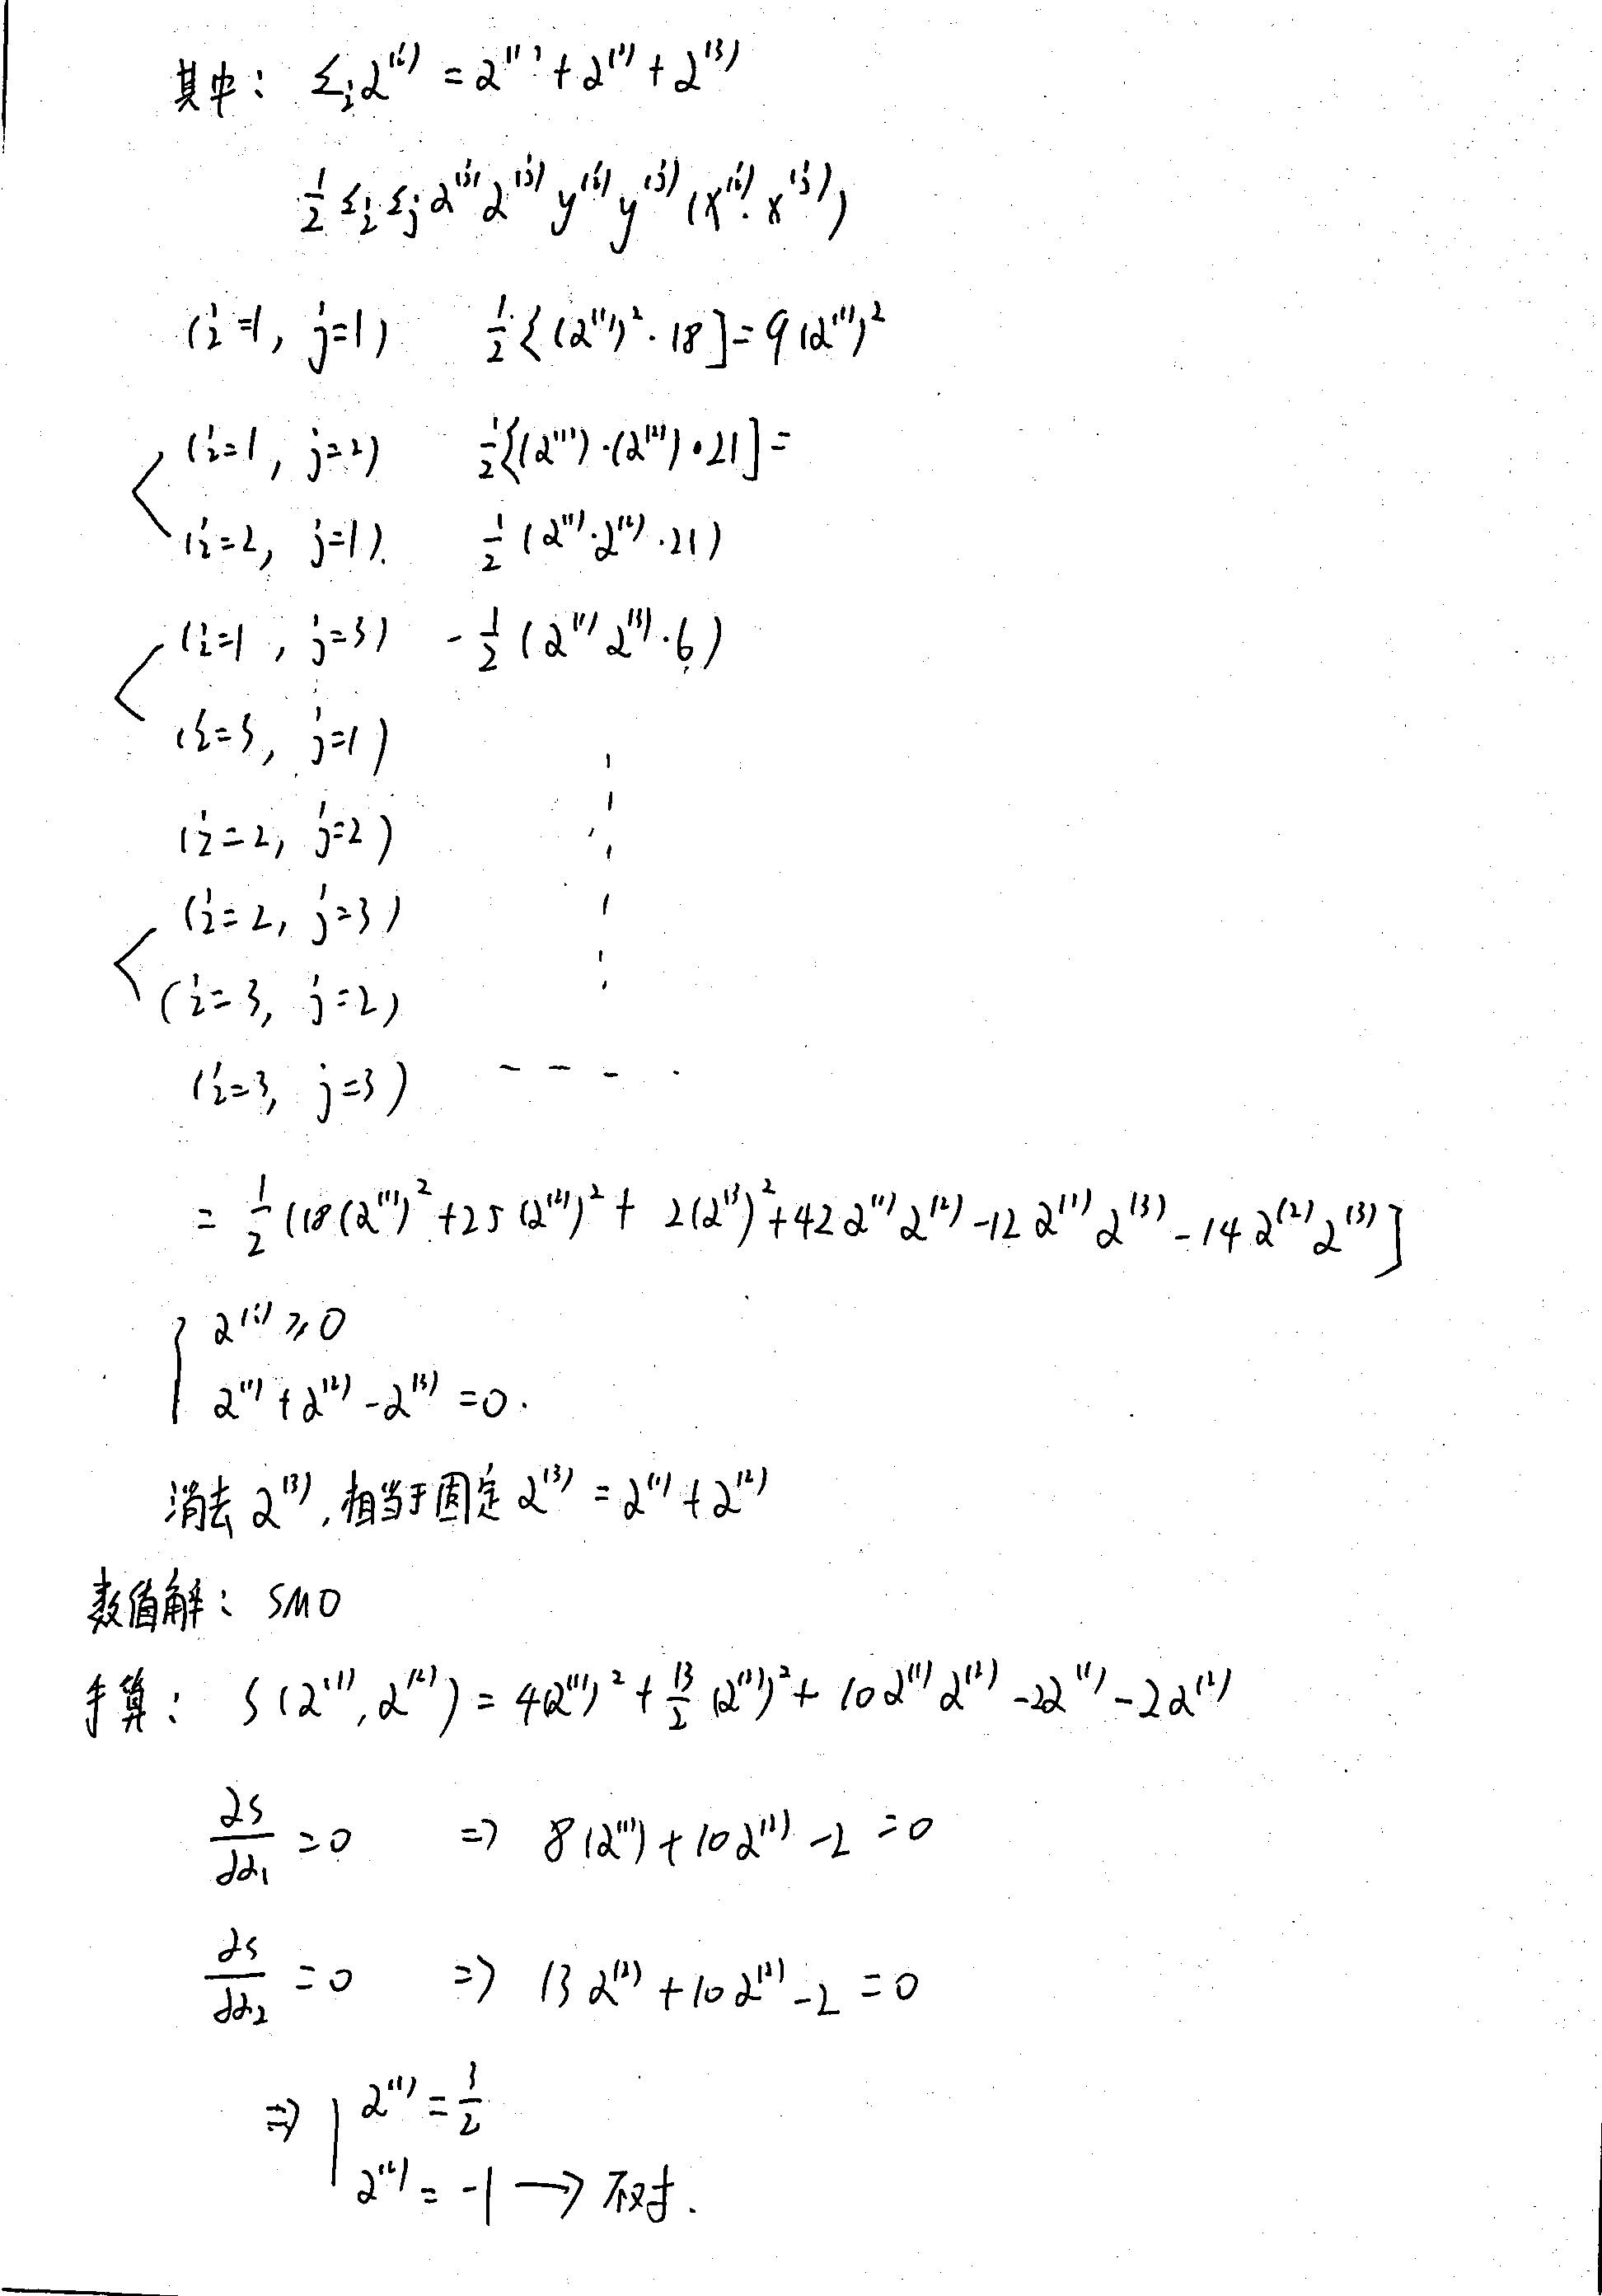 其中: Σᵢ α⁽ⁱ⁾ = α⁽¹⁾ + α⁽²⁾ + α⁽³⁾
½ Σᵢ Σⱼ α⁽ⁱ⁾ α⁽ʲ⁾ y⁽ⁱ⁾ y⁽ʲ⁾ (x⁽ⁱ⁾· x⁽ʲ⁾)
(i=1, j=1) ½ { (α⁽¹⁾)² · 18 ] = 9 (α⁽¹⁾)²
(i=1, j=2) ½ {(α⁽¹⁾)·(α⁽²⁾)·21] =
(i=2, j=1). ½ (α⁽¹⁾·α⁽²⁾·21)
(i=1, j=3) -½ (α⁽¹⁾ α⁽³⁾·6)
(i=3, j=1)
(i=2, j=2)
(i=2, j=3)
(i=3, j=2)
(i=3, j=3) - - - .
= ½ (18(α⁽¹⁾)² + 25(α⁽²⁾)² + 2(α⁽³⁾)² + 42α⁽¹⁾α⁽²⁾ - 12α⁽¹⁾α⁽³⁾ - 14α⁽²⁾α⁽³⁾]
α⁽ⁱ⁾ ≥ 0
α⁽¹⁾ + α⁽²⁾ - α⁽³⁾ = 0.
消去 α⁽³⁾, 相当于固定 α⁽³⁾ = α⁽¹⁾ + α⁽²⁾
数值解: SMO
手算: S(α⁽¹⁾, α⁽²⁾) = 4(α⁽¹⁾)² + 13/2 (α⁽²⁾)² + 10α⁽¹⁾α⁽²⁾ - 2α⁽¹⁾ - 2α⁽²⁾
∂S/∂α₁ = 0 ⇒ 8(α⁽¹⁾) + 10α⁽²⁾ - 2 = 0
∂S/∂α₂ = 0 ⇒ 13α⁽²⁾ + 10α⁽¹⁾ - 2 = 0
⇒ α⁽¹⁾ = 3/2
α⁽²⁾ = -1 → 不对.